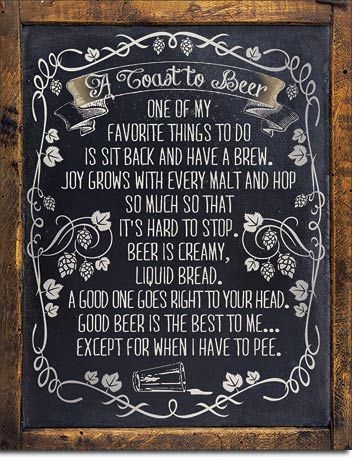 A Toast to Beer
ONE OF MY
FAVORITE THINGS TO DO
IS SIT BACK AND HAVE A BREW.
JOY GROWS WITH EVERY MALT AND HOP
SO MUCH SO THAT
IT'S HARD TO STOP.
BEER IS CREAMY,
LIQUID BREAD.
A GOOD ONE GOES RIGHT TO YOUR HEAD.
GOOD BEER IS THE BEST TO ME...
EXCEPT FOR WHEN I HAVE TO PEE.